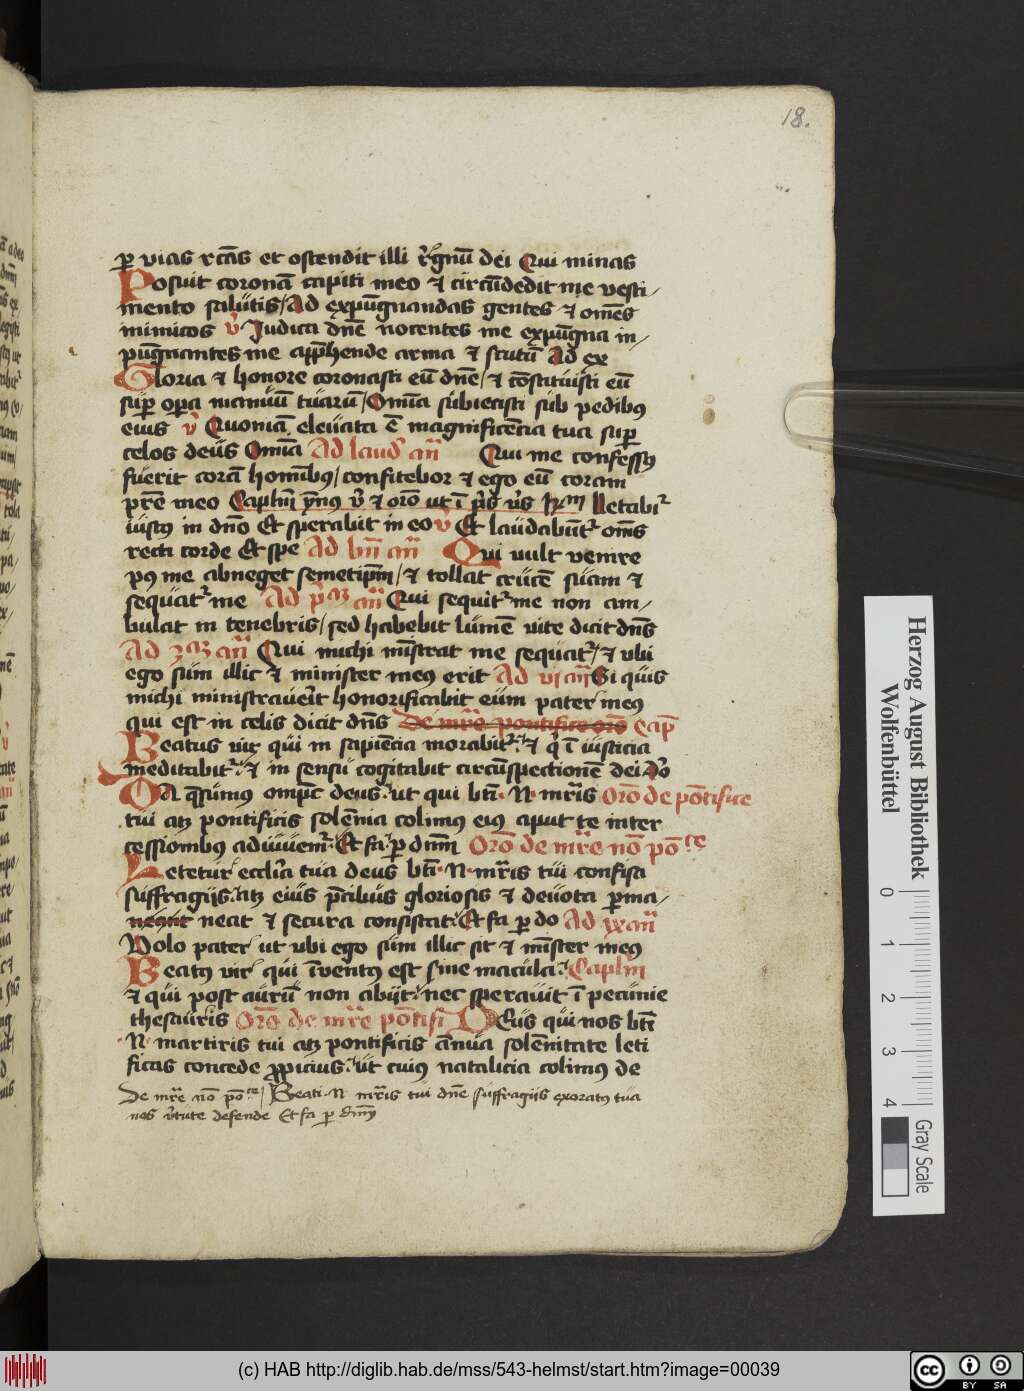 18.
per vias rectas et ostendit illi regnum dei Qui minas
Posuit coronam capiti meo et circumdedit me vesti/
mento salutis / Ad expugnandas gentes et omnes
inimicos v Judica dne nocentes me expugna in/
pugnantes me apprehende arma et scutum Ad ex
Gloria et honore coronasti eum dne / et constituisti eum
super opera manuum tuarum / Omnia subiecisti sub pedibus
eius v Quoniam elevata e magnificencia tua super
celos deus Omnia Ad laud an Qui me confessus
fuerit coram hominibus / confitebor et ego eum coram
pre meo Caplm ymnus v et oro ut i pis vis Rm Letabir
iustus in dno Et sperabit in eo v Et laudabuntr oms
recti corde Et spe Ad bn an Qui vult venire
pus me abneget semetipm / et tollat crucem suam et
sequatr me Ad pa an Qui sequitr me non am/
bulat in tenebris / sed habebit lumen vite dicit dns
Ad 3a an Qui michi mistrat me sequatr / et ubi
ego sum illic et minister meus erit Ad vi an Si quis
michi ministraverit honorificabit eum pater meus
qui est in celis dicit dns De mre pontifice oro cap
Beatus vir qui in sapiencia morabitr et q i iusticia
meditabitr et in sensu cogitabit circumspectionem dei
Da qs ompc deus ut qui bti N mris Oro de pontifice
tui atz pontificis solennia colimus eius aput te inter
cessionibus adiuvemr Et fa p dnm Oro de mre non pontce
Letetur ecclia tua deus bti N mris tui confisa
suffragiis atz eius precibus gloriosis et devota perma/
neat et secura consistat Et fa p do Ad ix an
Volo pater ut ubi ego sum illic sit et minister meus
Beatus vir qui inventus est sine macula Caplm
et qui post aurum non abiit nec speravit i pecunie
thesauris Oro de mre pontifi Deus qui nos bti
N martiris tui atz pontificis annua solennitate leti
ficas concede propicius ut cuius natalicia colimus de
De mre non ponce / Beati N mris tui dne suffragiis exoratus tua
nos virtute defende Et fa p dnm
Herzog August Bibliothek
Wolfenbüttel
0 1 2 3 4
Gray Scale
(c) HAB http://diglib.hab.de/mss/543-helmst/start.htm?image=00039
cc BY SA